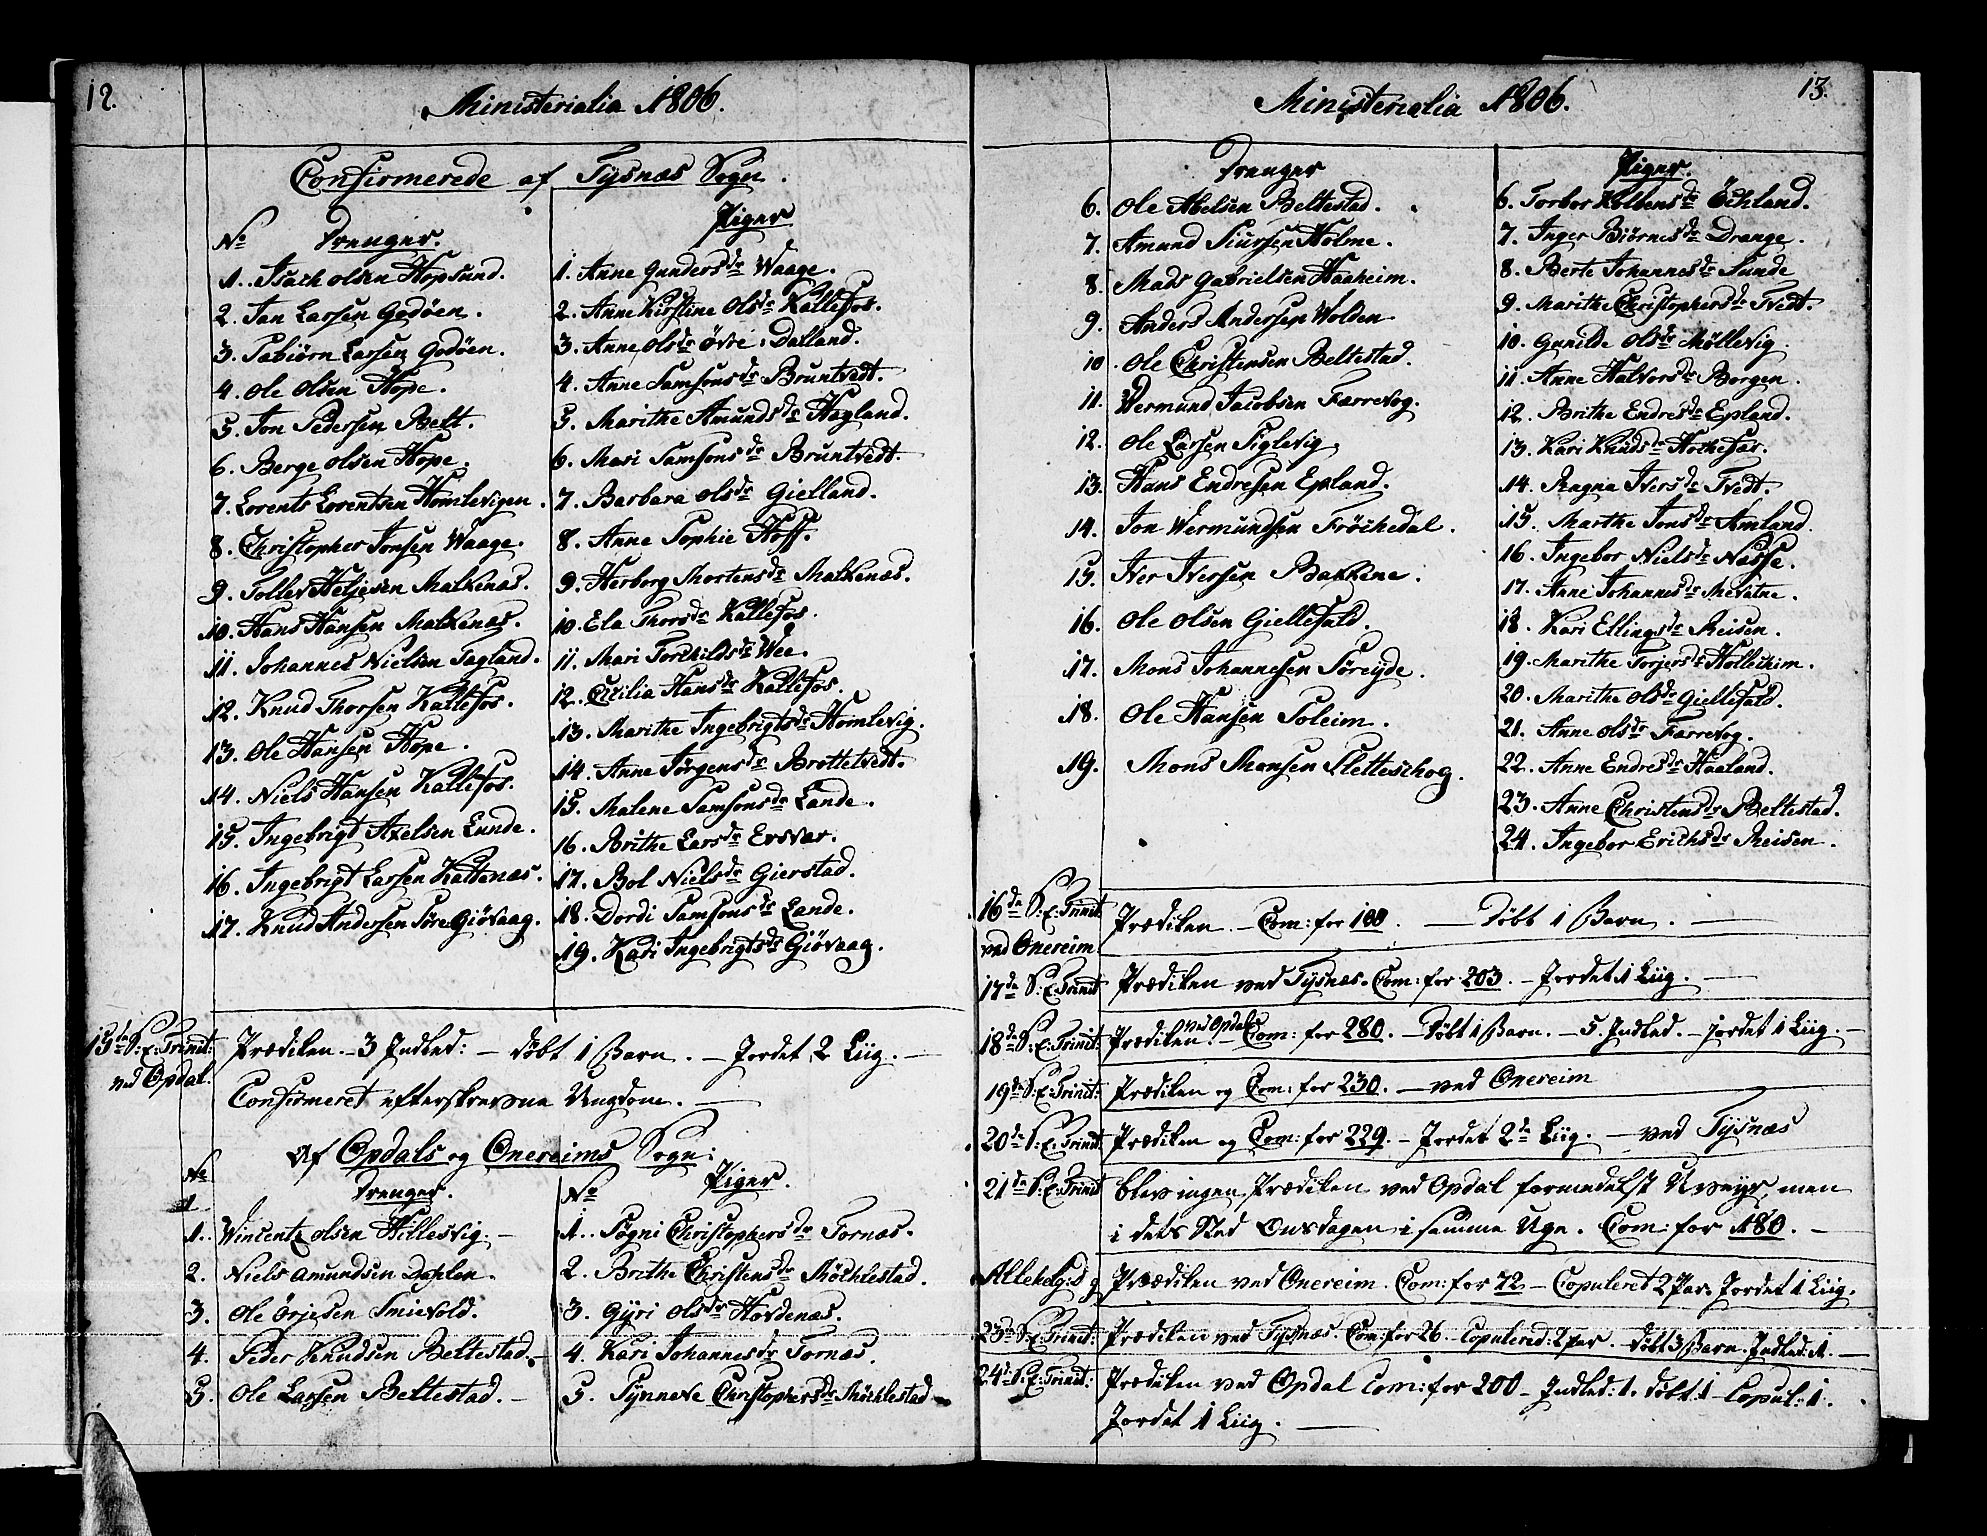 12.
Ministerialia 1806.
Confirmerede af Tysnæs Sogn.
No Drenge.
1. Isach Olsen Hopsund.
2. Jan Larsen Godøen.
3. Sabiørn Larsen Godøen.
4. Ole Olsen Hope.
5. Jon Pedersen Belt.
6. Berge Olsen Hope.
7. Lorents Lorentsen Homlevigen.
8. Christopher Jonsen Waage.
9. Tollev Heljesen Malkenæs.
10. Hans Hansen Malkenæs.
11. Johannes Nielsen Fagland.
12. Knud Thorsen Kallefos.
13. Ole Hansen Hope.
14. Niels Hansen Kallefos.
15. Ingebrigt Axelsen Lunde.
16. Ingebrigt Larsen Kaldenæs.
17. Knud Andersen Søre Giøvaag.
Piger
1. Anne Gundersdr Waage.
2. Anne Kirstine Olsdr Kallefos.
3. Anne Olsdr Øvre Dalland.
4. Anne Samsonsdr Bruntvedt.
5. Marithe Amundsdr Hagland.
6. Mari Samsonsdr Bruntvedt.
7. Barbara Olsdr Gielland.
8. Anne Sophie Hoff.
9. Herborg Mortensdr Malkenæs.
10. Ela Thorsdr Kallefos.
11. Mari Torchildsdr Wee.
12. Cicilia Hansdr Kallefos.
13. Marithe Ingebrigtsdr Homlevig.
14. Anne Jørgensdr Brottetvedt.
15. Malene Samsonsdr Lande.
16. Brithe Larsdr Ersvær.
17. Bol Nielsdr Gierstad.
18. Dordi Samsonsdr Lande.
19. Kari Ingebrigtsdr Giøvaag.
15de S: E: Trinit: ved Opdal.
Prædiken – 3 Indled: – døbt 1 Barn. – Jordet 2 Liig. –
Confirmeret efterskrevne Ungdom. –
Af Opdals og Onereims Sogn:
No Drenger.
1. Wincentz Olsen Hillesvig. –
2. Niels Amundsen Dahlen.
3. Ole Ørjesen Smievold.
4. Peder Knudsen Beltestad. –
5. Ole Larsen Beltestad. –
No Piger.
1. Søgni Christophersdr Tornæs.
2. Brithe Christensdr Møchlestad.
3. Gyri Olsdr Hovdenæs.
4. Kari Johannesdr Tornæs.
5. Synneve Christophersdr Møchlestad
13.
Ministerialia 1806.
Drenger
6. Ole Abelsen Beltestad.
7. Amund Siursen Holme.
8. Mads Gabrielsen Haaheim.
9. Anders Andersen Wolden
10. Ole Christensen Beltestad.
11. Wermund Jacobsen Færrevog.
12. Ole Larsen Siglevig
13. Hans Endresen Epland.
14. Jon Wermundsen Frøchedal.
15. Iver Iversen Bakkene.
16. Ole Olsen Giellefald.
17. Mons Johannesen Søreyde.
18. Ole Hansen Soleim.
19. Mons Monsen Fletteschog.
Piger.
6. Torbor Kolbensdr Øchland.
7. Inger Biørnesdr Drange.
8. Berte Johannesdr Sunde
9. Marithe Christophersdr Tvedt.
10. Gunilde Olsdr Møllevig.
11. Anne Halvorsdr Borgen.
12. Brithe Endresdr Epland.
13. Kari Knudsdr Hochefær.
14. Ragna Iversdr Tvedt.
15. Marthe Jonsdr Amland.
16. Ingebor Nielsdr Næsse.
17. Anne Johannesdr Mevatne.
18. Kari Ellingsdr Reisen.
19. Marithe Torjersdr Holleckim.
20. Marithe Olsdr Giellefald.
21. Anne Olsdr Færrevog.
22. Anne Endresdr Haaland.
23. Anne Christensdr Beltestad.
24. Ingebor Erichsdr Reisen.
16de S: E: Trinit: ved Onereim
Prædiken – Com: for 100. – Døbt 1 Barn. –
17de S: E: Trinit: Prædiken ved Tysnæs. Com: for 203. – Jordet 1 Liig. –
18de S: E: Trinit: Prædiken ved Opdal – Com: for 280. – Døbt 1 Barn. – 5 Indled. – jordet 1 Liig. –
19de S: E: Trinit: Prædiken og Com: for 230. – ved Onereim
20de S: E: Trinit: Prædiken og Com: for 229. – Jordet 2de Liig. – ved Tysnæs
21de S: E: Trinit: blev ingen Prædiken ved Opdal formedelst Uveyr, men
i dets Sted Onsdagen i samme Uge. Com: for 180. –
Allehelg: dg Prædiken ved Onereim. Com: for 72 – Copuleret 2 Par. Jordet 1 Liig.
23de S: E: Trinit: Prædiken ved Tysnæs. Com: for 26. Copulered: 2 par. døbt 3 Barn. Indled: 1. –
24de S: E: Trinit: Prædiken ved Opdal Com: for 200 – Indled: 1. døbt: 1 – Copul: 1.
Jordet 1 Liig. –